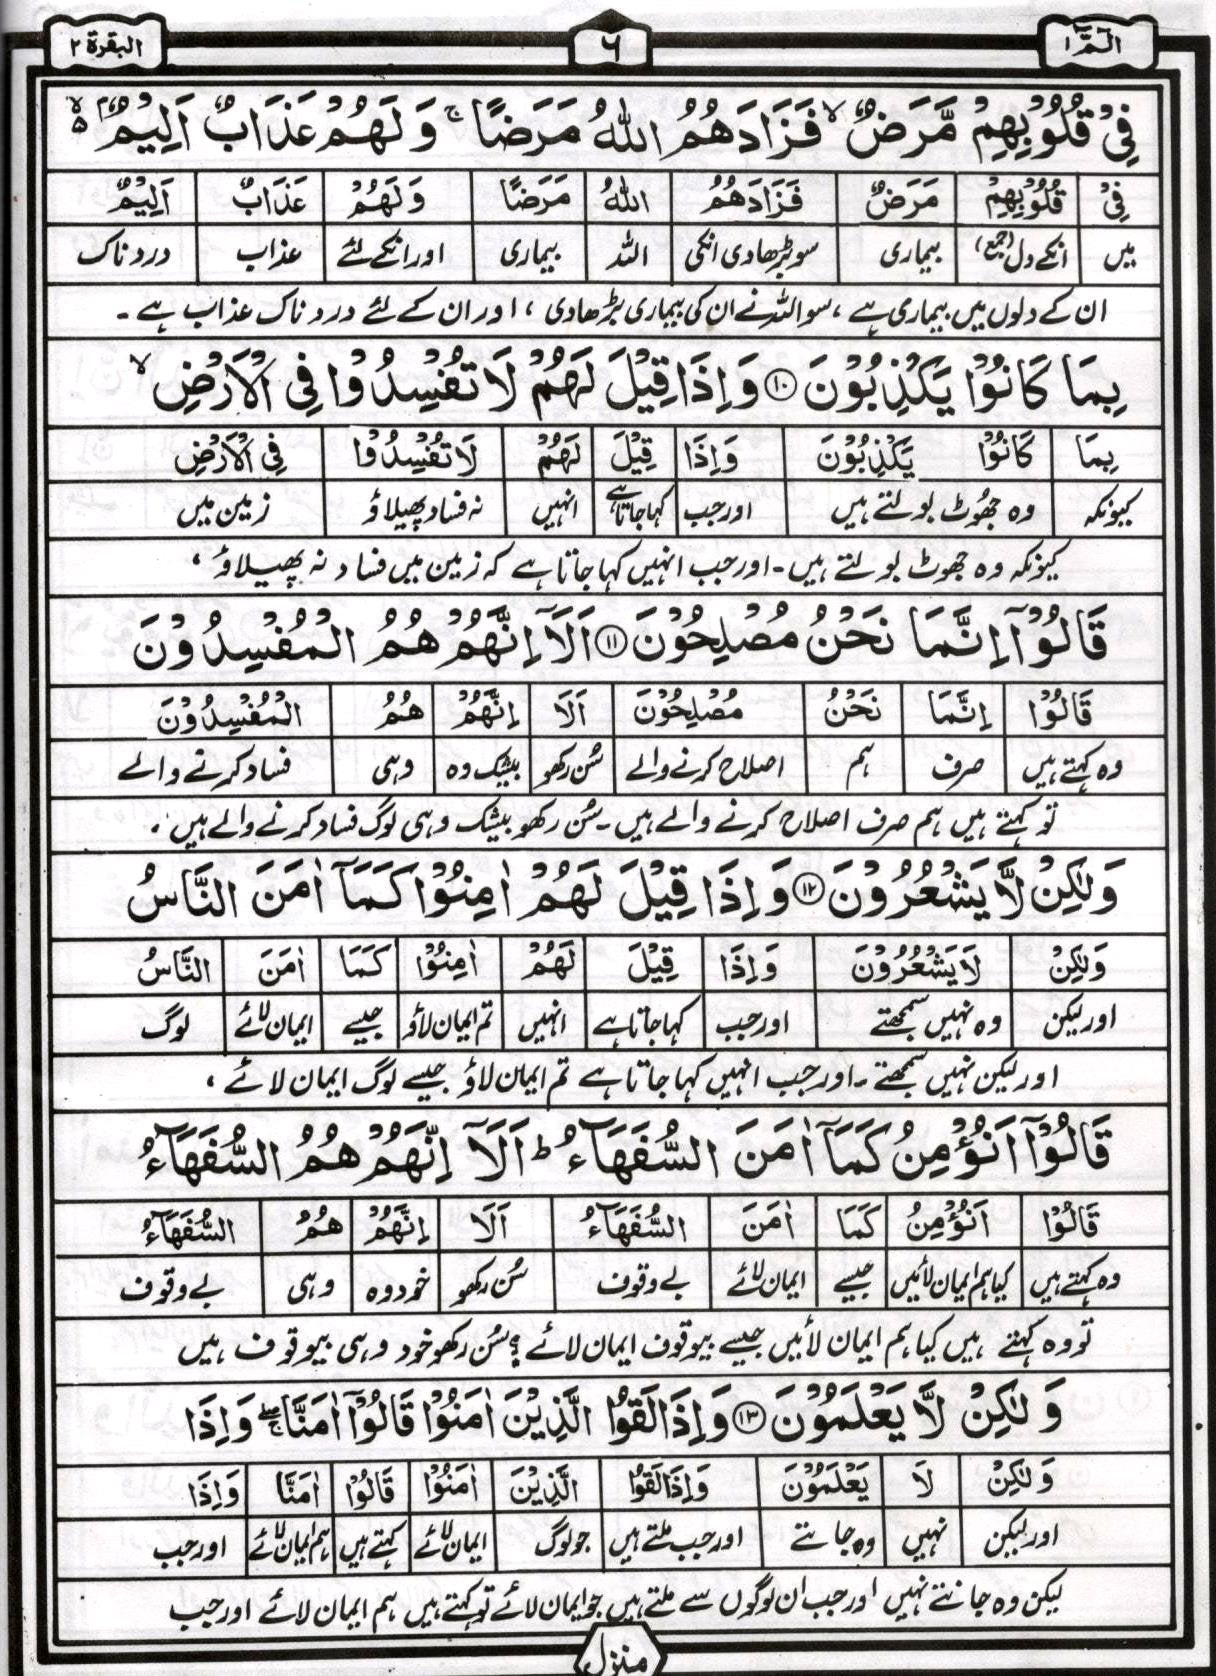 الٓمّٓ ١ ٦ البقرة ٢
فِیْ قُلُوْبِهِمْ مَّرَضٌ ۙ فَزَادَهُمُ اللهُ مَرَضًا ۚ وَلَهُمْ عَذَابٌ اَلِیْمٌ ۙ۬
فِیْ قُلُوْبِهِمْ مَرَضٌ فَزَادَهُمُ اللهُ مَرَضًا وَلَهُمْ عَذَابٌ اَلِیْمٌ
میں انکے دل (جمع) بیماری سو بڑھادی انکی اللہ بیماری اور انکے لئے عذاب دردناک
ان کے دلوں میں بیماری ہے ، سو اللہ نے ان کی بیماری بڑھادی ، اور ان کے لئے دردناک عذاب ہے ۔
بِمَا كَانُوْا یَكْذِبُوْنَ ⑩ وَاِذَا قِیْلَ لَهُمْ لَا تُفْسِدُوْا فِی الْاَرْضِ ۙ
بِمَا كَانُوْا یَكْذِبُوْنَ وَاِذَا قِیْلَ لَهُمْ لَا تُفْسِدُوْا فِی الْاَرْضِ
کیونکہ وہ جھوٹ بولتے ہیں اور جب کہا جاتا ہے انہیں نہ فساد پھیلاؤ زمین میں
کیونکہ وہ جھوٹ بولتے ہیں ۔ اور جب انہیں کہا جاتا ہے کہ زمین میں فساد نہ پھیلاؤ ،
قَالُوْۤا اِنَّمَا نَحْنُ مُصْلِحُوْنَ ⑪ اَلَاۤ اِنَّهُمْ هُمُ الْمُفْسِدُوْنَ
قَالُوْا اِنَّمَا نَحْنُ مُصْلِحُوْنَ اَلَا اِنَّهُمْ هُمُ الْمُفْسِدُوْنَ
وہ کہتے ہیں صرف ہم اصلاح کرنے والے سُن رکھو بیشک وہ وہی فساد کرنے والے
تو کہتے ہیں ہم صرف اصلاح کرنے والے ہیں ۔ سُن رکھو بیشک وہی لوگ فساد کرنے والے ہیں ۔
وَلٰكِنْ لَّا یَشْعُرُوْنَ ⑫ وَاِذَا قِیْلَ لَهُمْ اٰمِنُوْا كَمَاۤ اٰمَنَ النَّاسُ
وَلٰكِنْ لَا یَشْعُرُوْنَ وَاِذَا قِیْلَ لَهُمْ اٰمِنُوْا كَمَا اٰمَنَ النَّاسُ
اور لیکن وہ نہیں سمجھتے اور جب کہا جاتا ہے انہیں تم ایمان لاؤ جیسے ایمان لائے لوگ
اور لیکن نہیں سمجھتے ۔ اور جب انہیں کہا جاتا ہے تم ایمان لاؤ جیسے لوگ ایمان لائے ،
قَالُوْۤا اَنُؤْمِنُ كَمَاۤ اٰمَنَ السُّفَهَآءُ ؕ اَلَاۤ اِنَّهُمْ هُمُ السُّفَهَآءُ
قَالُوْا اَنُؤْمِنُ كَمَا اٰمَنَ السُّفَهَآءُ اَلَا اِنَّهُمْ هُمُ السُّفَهَآءُ
وہ کہتے ہیں کیا ہم ایمان لائیں جیسے ایمان لائے بے وقوف سُن رکھو خود وہ وہی بے وقوف
تو وہ کہتے ہیں کیا ہم ایمان لائیں جیسے بیوقوف ایمان لائے ؟ سُن رکھو خود وہی بیوقوف ہیں
وَلٰكِنْ لَّا یَعْلَمُوْنَ ⑬ وَاِذَا لَقُوا الَّذِیْنَ اٰمَنُوْا قَالُوْۤا اٰمَنَّا ۖۚ وَاِذَا
وَلٰكِنْ لَا یَعْلَمُوْنَ وَاِذَا لَقُوا الَّذِیْنَ اٰمَنُوْا قَالُوْا اٰمَنَّا وَاِذَا
اور لیکن نہیں وہ جانتے اور جب ملتے ہیں جو لوگ ایمان لائے کہتے ہیں ہم ایمان لائے اور جب
لیکن وہ جانتے نہیں اور جب ان لوگوں سے ملتے ہیں جو ایمان لائے تو کہتے ہیں ہم ایمان لائے اور جب
منزل